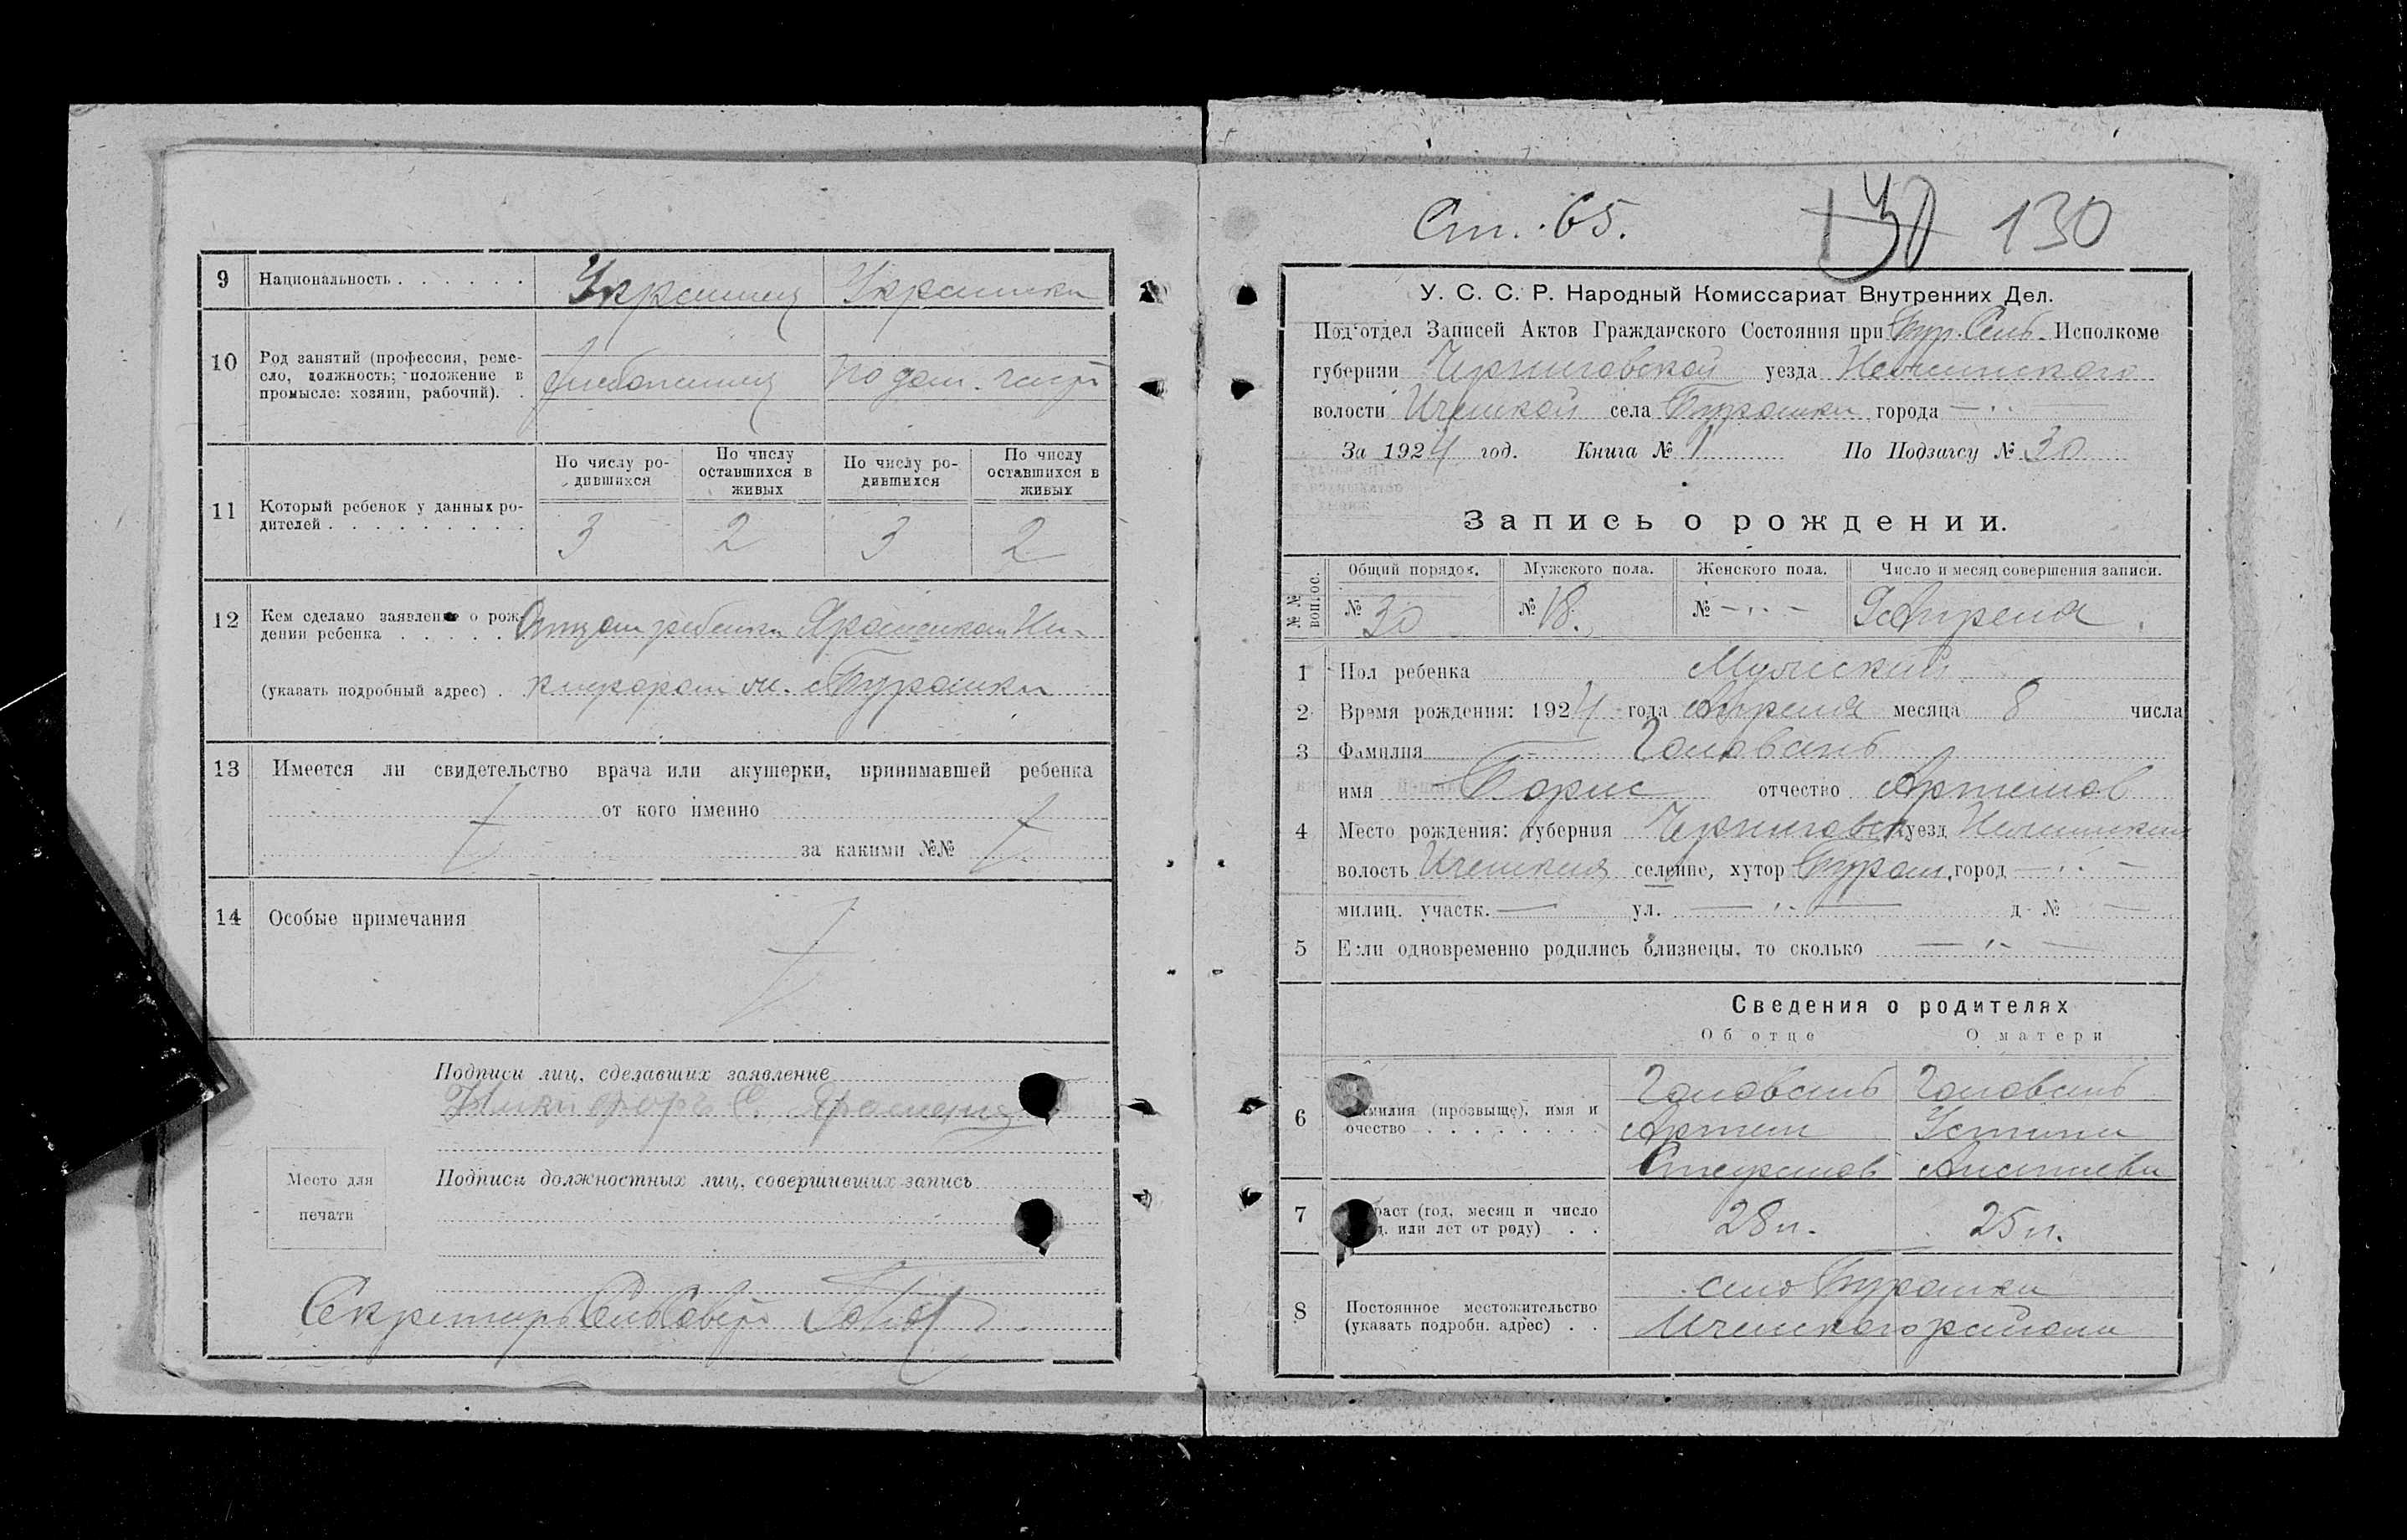 9 Национальность . . . . . . Украинец Украинка
10 Род занятий (профессия, реме-
сло, должность; положение в
промысле: хозяин, рабочий). . Хлебопашец По дом. хоз.
11 Который ребенок у данных ро-
дителей . . . . . . . . .
По числу ро-
дившихся
По числу
оставшихся в
живых
По числу ро-
дившихся
По числу
оставшихся в
живых
3 2 3 2
12 Кем сделано заявление о рож-
дении ребенка . . . . . Отцом ребенка Ярошенком Ни-
(указать подробный адрес) . кифором
13 Имеется ли свидетельство врача или акушерки, принимавшей ребенка
от кого именно
за какими №№
14 Особые примечания
Подписи лиц, сделавших заявление
Никифоръ С. Ярошенко
Место для
печати
Подписи должностных лиц, совершивших запись
Секретарь СельСовета
Ст. 65. 130
У. С. С. Р. Народный Комиссариат Внутренних Дел.
Под'отдел Записей Актов Гражданского Состояния при Сель. Исполкоме
губернии Черниговской уезда Нежинского
волости Иченской села города — ·· —
За 1924 год. Книга № 1 По Подзагсу № 30
Запись о рождении.
№ №
вопрос. Общий порядок. Мужского пола. Женского пола. Число и месяц совершения записи.
№ 30 № 18. № — ·· — Апреля
1 Пол ребенка Мужский
2 Время рождения: 1924 года Апреля месяца 8 числа
3 Фамилия Головань
имя Борис отчество Артемов
4 Место рождения: губерния Черниговск. уезд Нежинский
волость Иченская селение, хутор город — ·· —
милиц. участк. — ул. — ·· — д. № —
5 Если одновременно родились близнецы, то сколько — ·· —
Сведения о родителях
Об отце О матери
6 Фамилия (прозвище), имя и
очество . . . . . . . .
Головань Головань
Артем Устина
Стефанов
7 Возраст (год, месяц и число
или лет от роду) . . 28 л. 25 л.
8 Постоянное местожительство
(указать подробн. адрес) . .
село
Иченского района